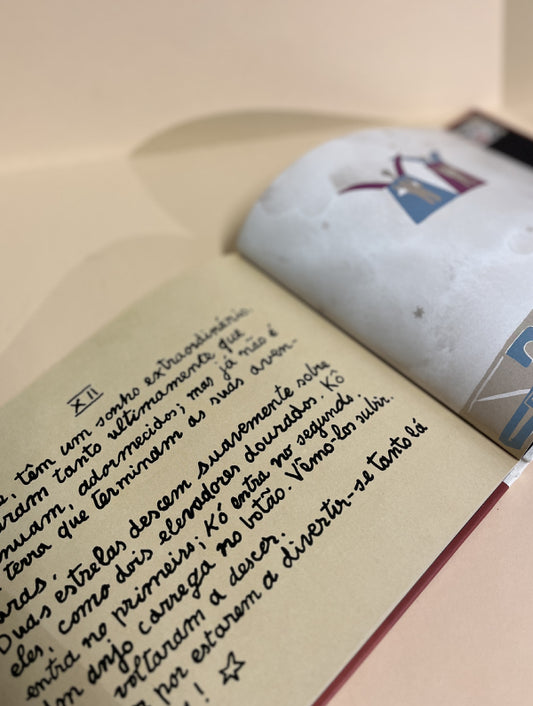 XII
têm um sonho extraordinário.
tanto ultimamente que
adormecidos; mas já não é
terra que terminam as suas aven-
Duas estrelas descem suavemente sobre
eles, como dois elevadores dourados. Kô
entra no primeiro; Kó entra no segundo.
anjo carrega no botão. Vêmo-los subir.
voltaram a descer.
por estarem a divertir-se tanto lá
! ☆